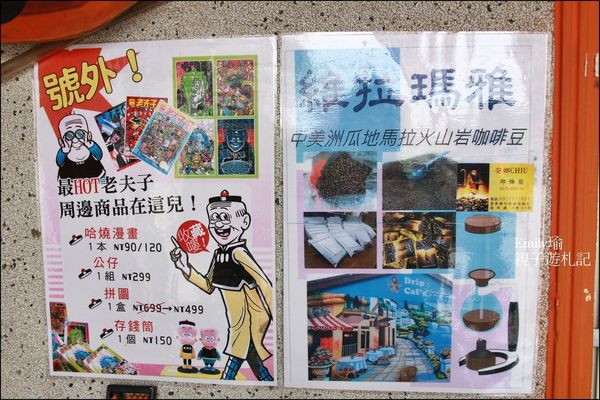 號外！
老夫子
最HOT老夫子
周邊商品在這兒！
收藏哦！
哈燒漫畫
1本 NT90/120
公仔
1組 NT299
拼圖
1盒 NT699→NT499
存錢筒
1個 NT150
維拉瑪雅
中美洲瓜地馬拉火山岩咖啡豆
安娜CHIU
Drip
Cafe
Emily瑜
親子遊札記